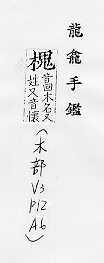 龍龕手鑑
槐
音回木名又
姓又音懷
(木部
V3
P12
A6)